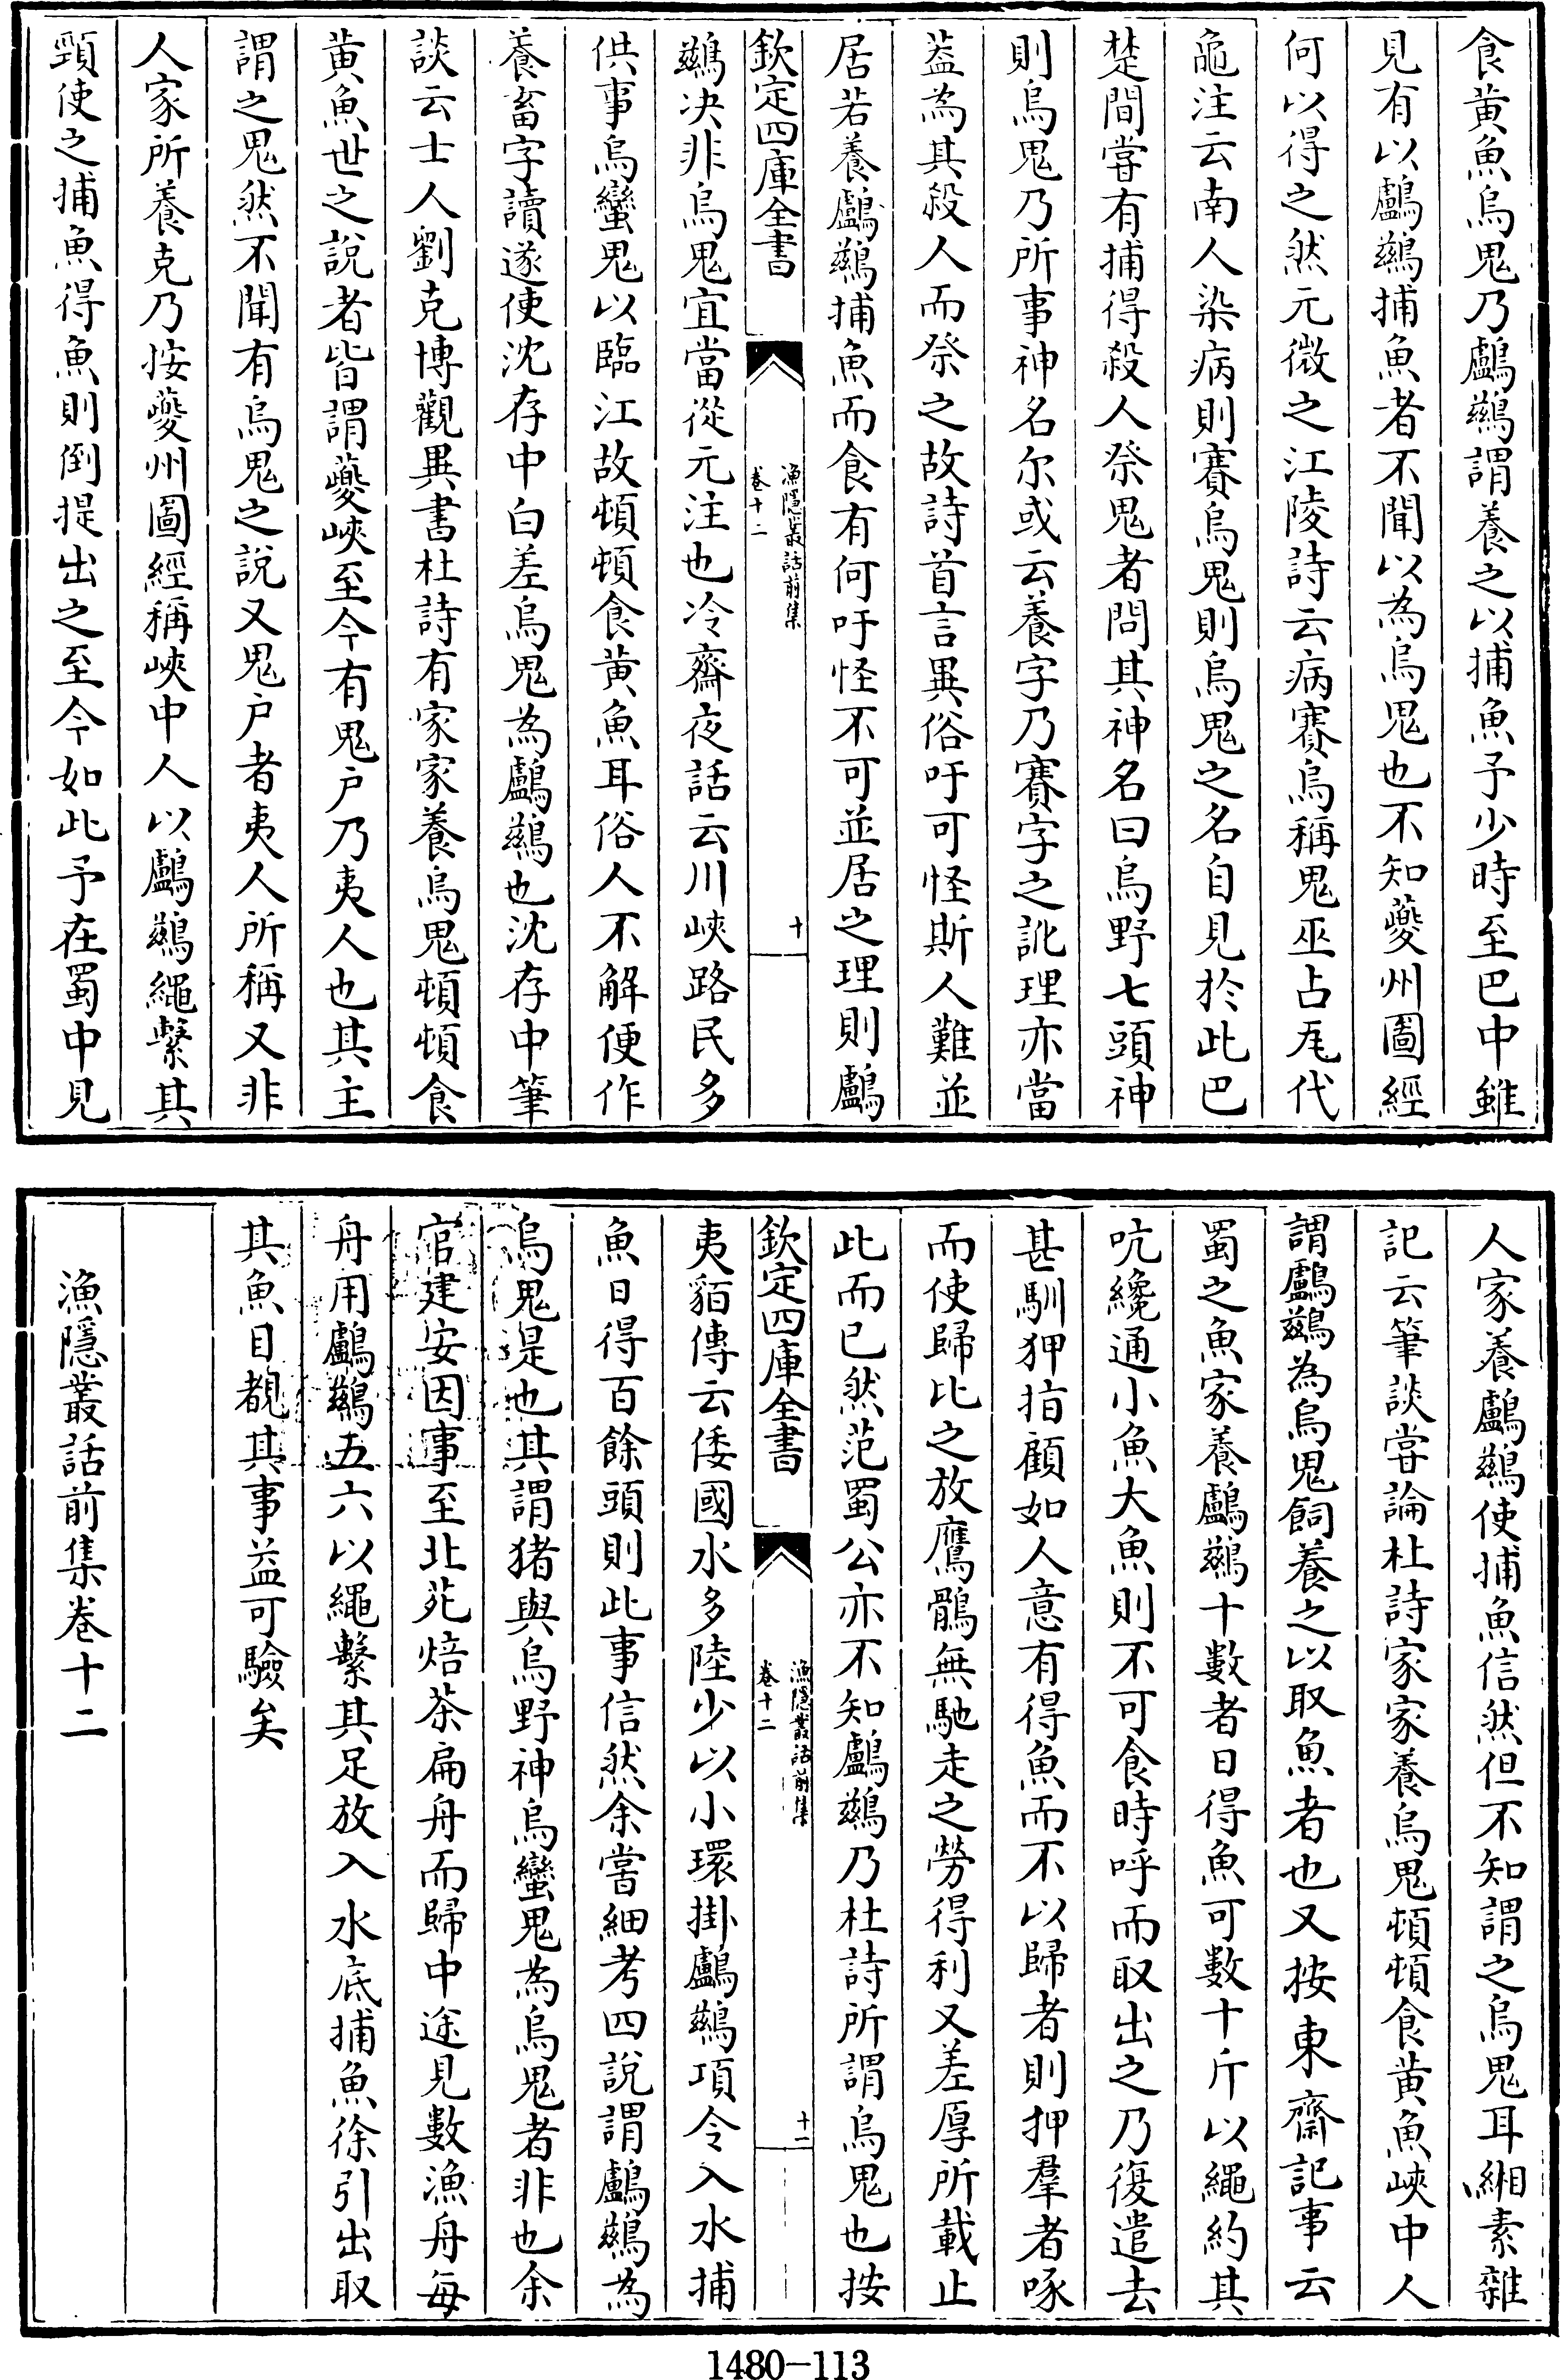 食黄魚烏鬼乃鸕鷀謂養之以捕魚予少時至巴中雖
見有以鸕鷀捕魚者不聞以為烏鬼也不知夔州圖經
何以得之然元微之江陵詩云病賽烏稱鬼巫占瓦代
龜注云南人染病則賽烏鬼則烏鬼之名自見於此巴
楚間嘗有捕得殺人祭鬼者問其神名曰烏野七頭神
則烏鬼乃所事神名尔或云養字乃賽字之訛理亦當
葢為其殺人而祭之故詩首言異俗吁可怪斯人難並
居若養鸕鷀捕魚而食有何吁怪不可並居之理則鸕
欽定四庫全書
漁隱叢話前集
卷十二
十
鷀决非烏鬼宜當從元注也冷齋夜話云川峽路民多
供事烏蠻鬼以臨江故頓頓食黄魚耳俗人不解便作
養畜字讀遂使沈存中白差烏鬼為鸕鷀也沈存中筆
談云士人劉克博觀異書杜詩有家家養烏鬼頓頓食
黄魚世之說者皆謂夔峽至今有鬼户乃夷人也其主
謂之鬼然不聞有烏鬼之說又鬼户者夷人所稱又非
人家所養克乃按夔州圖經稱峽中人以鸕鷀繩繫其
頸使之捕魚得魚則倒提出之至今如此予在蜀中見
人家養鸕鷀使捕魚信然但不知謂之烏鬼耳緗素雜
記云筆談甞論杜詩家家養烏鬼頓頓食黄魚峽中人
謂鸕鷀為烏鬼飼養之以取魚者也又按東齋記事云
蜀之魚家養鸕鷀十數者日得魚可數十斤以繩約其
吭纔通小魚大魚則不可食時呼而取出之乃復遣去
甚馴狎指顧如人意有得魚而不以歸者則押羣者啄
而使歸比之放鷹鶻無馳走之勞得利又差厚所載止
此而已然范蜀公亦不知鸕鷀乃杜詩所謂烏鬼也按
欽定四庫全書
漁隱叢話前集
卷十二
十一
夷貊傳云倭國水多陸少以小環掛鸕鷀項令入水捕
魚日得百餘頭則此事信然余嘗細考四說謂鸕鷀為
烏鬼是也其謂猪與烏野神烏蠻鬼為烏鬼者非也余
官建安因事至北苑焙茶扁舟而歸中途見數漁舟每
舟用鸕鷀五六以繩繫其足放入水底捕魚徐引出取
其魚目覩其事益可驗矣
漁隱叢話前集卷十二
1480-113